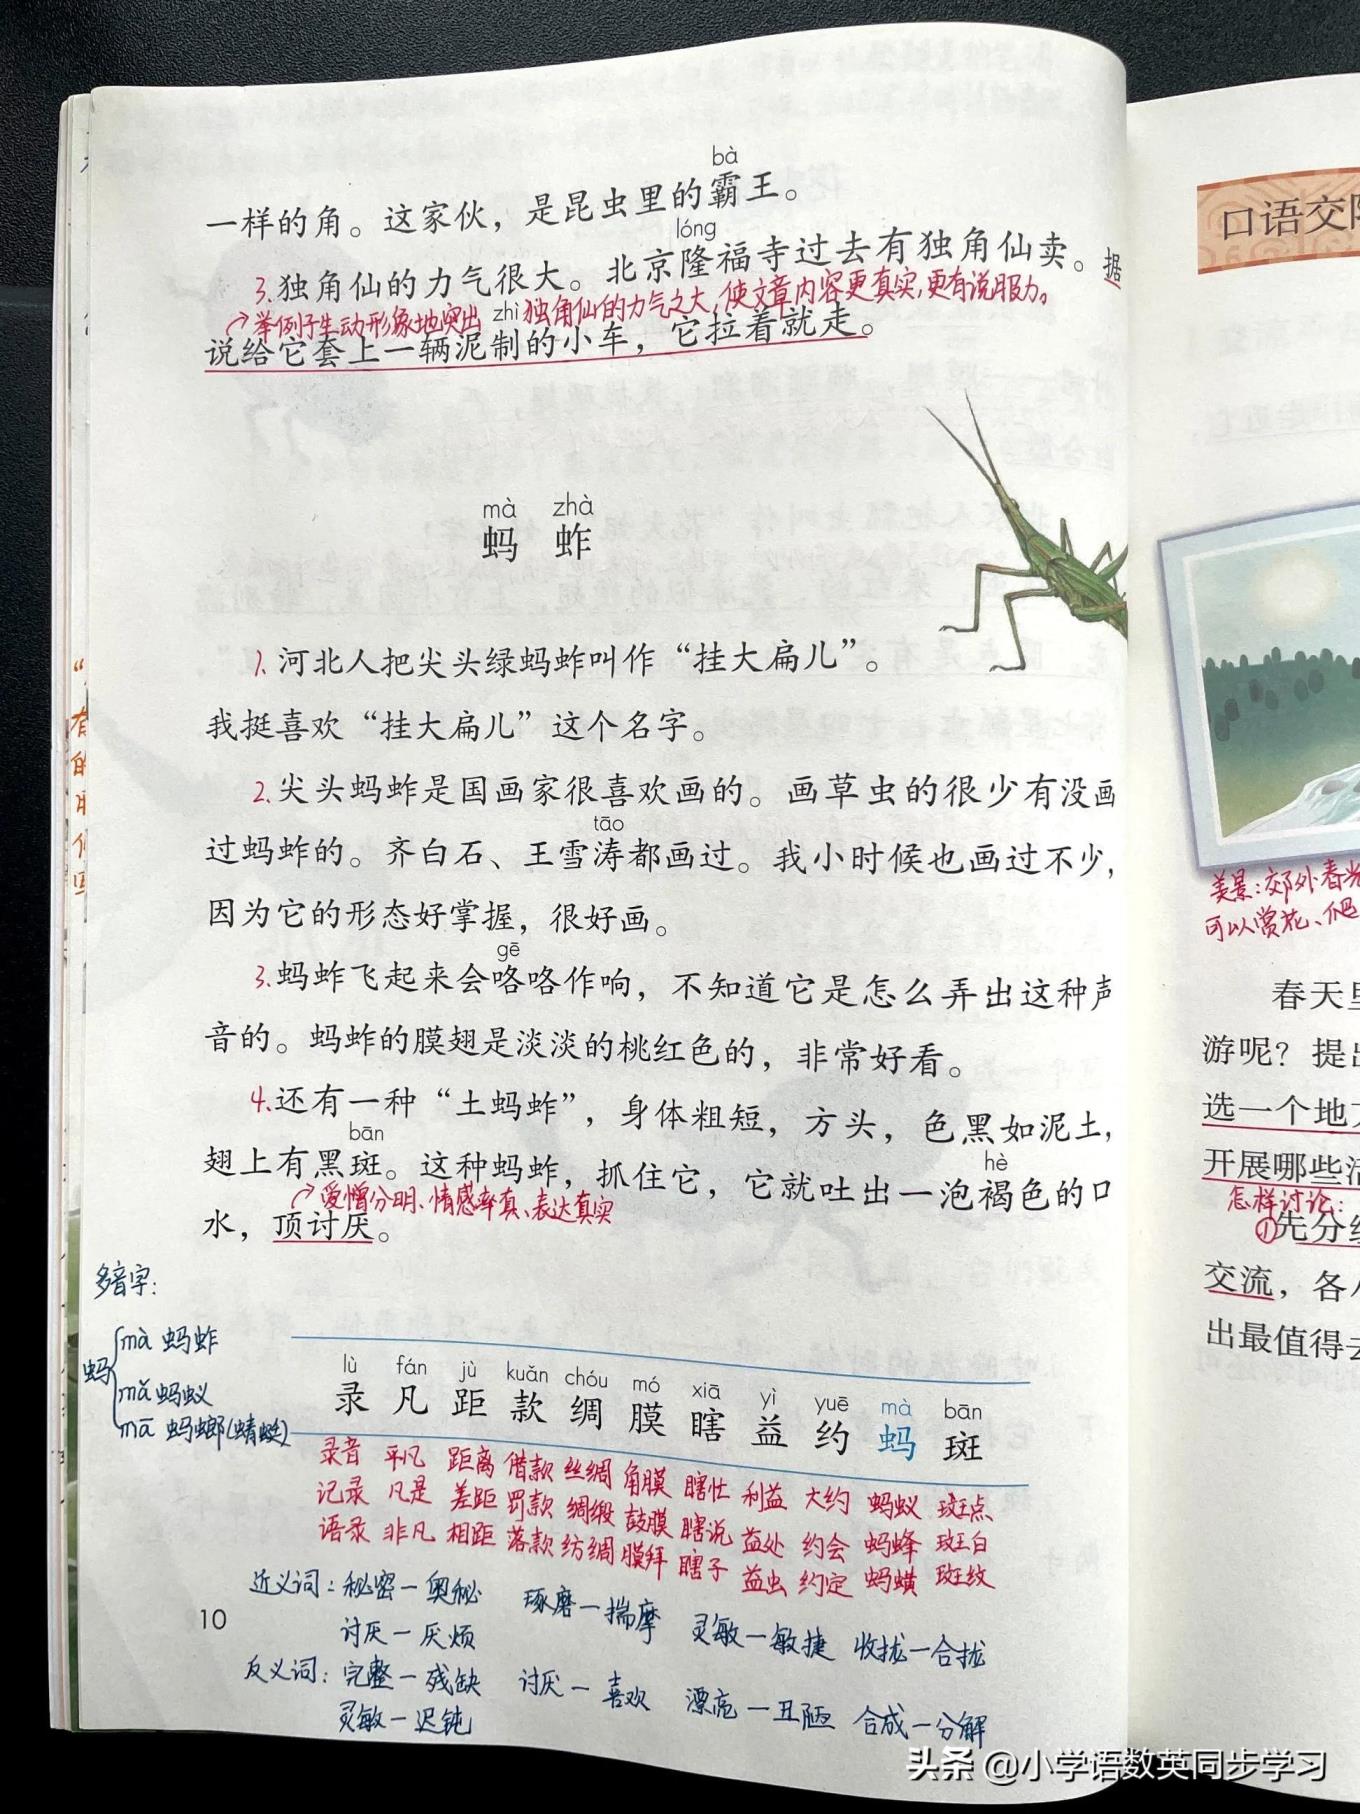 bà
一样的角。这家伙，是昆虫里的霸王。
lóng
3.独角仙的力气很大。北京隆福寺过去有独角仙卖。据
举例子生动形象地突出独角仙的力气之大，使文章内容更真实，更有说服力。
zhì
说给它套上一辆泥制的小车，它拉着就走。
mà zhà
蚂蚱
1.河北人把尖头绿蚂蚱叫作“挂大扁儿”。
我挺喜欢“挂大扁儿”这个名字。
2.尖头蚂蚱是国画家很喜欢画的。画草虫的很少有没画
tāo
过蚂蚱的。齐白石、王雪涛都画过。我小时候也画过不少，
因为它的形态好掌握，很好画。
gē
3.蚂蚱飞起来会咯咯作响，不知道它是怎么弄出这种声
音的。蚂蚱的膜翅是淡淡的桃红色的，非常好看。
4.还有一种“土蚂蚱”，身体粗短，方头，色黑如泥土，
bān
翅上有黑斑。这种蚂蚱，抓住它，它就吐出一泡褐色的口
hè
爱憎分明、情感率真、表达真实
水，顶讨厌。
多音字：
蚂
mà 蚂蚱
mǎ 蚂蚁
mā 蚂螂(蜻蜓)
lù fán jù kuǎn chóu mó xiā yì yuē mà bān
录 凡 距 款 绸 膜 瞎 益 约 蚂 斑
录音 平凡 距离 借款 丝绸 角膜 瞎忙 利益 大约 蚂蚁 斑点
记录 凡是 差距 罚款 绸缎 鼓膜 瞎说 益处 约会 蚂蜂 斑白
语录 非凡 相距 落款 纺绸 膜拜 瞎子 益虫 约定 蚂蟥 斑纹
近义词：秘密—奥秘 琢磨—揣摩 灵敏—敏捷 收拢—合拢
讨厌—厌烦
反义词：完整—残缺 讨厌—喜欢 漂亮—丑陋 合成—分解
灵敏—迟钝
10
口语交际
美景：郊外春光
可以赏花、爬
春天里
游呢？提出
选一个地方
开展哪些活
怎样讨论：
①先分组
交流，各人
出最值得去
头条 @小学语数英同步学习